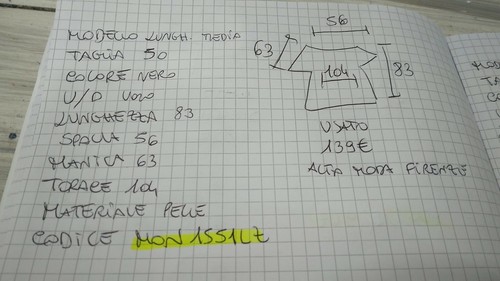 MODELLO LUNGH. MEDIA
TAGLIA 50
COLORE NERO
U/D UOMO
LUNGHEZZA 83
SPALLA 56
MANICA 63
TORACE 104
MATERIALE PELLE
CODICE MON1551LZ
56
63
104
83
USATO
139€
ALTA MODA FIRENZE